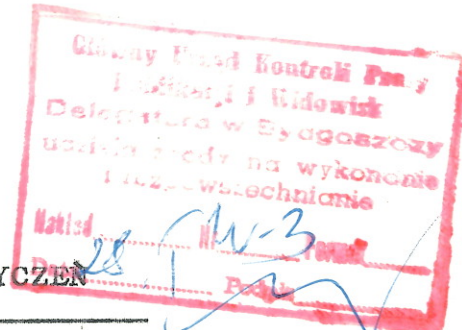 Główny Urząd Kontroli Prasy
Publikacji i Widowisk
Delegatura w Bydgoszczy
udziela zgody na wykonanie
i rozpowszechnianie
Nakład W-3 Format
YCZEŃ 28
Data Podpis